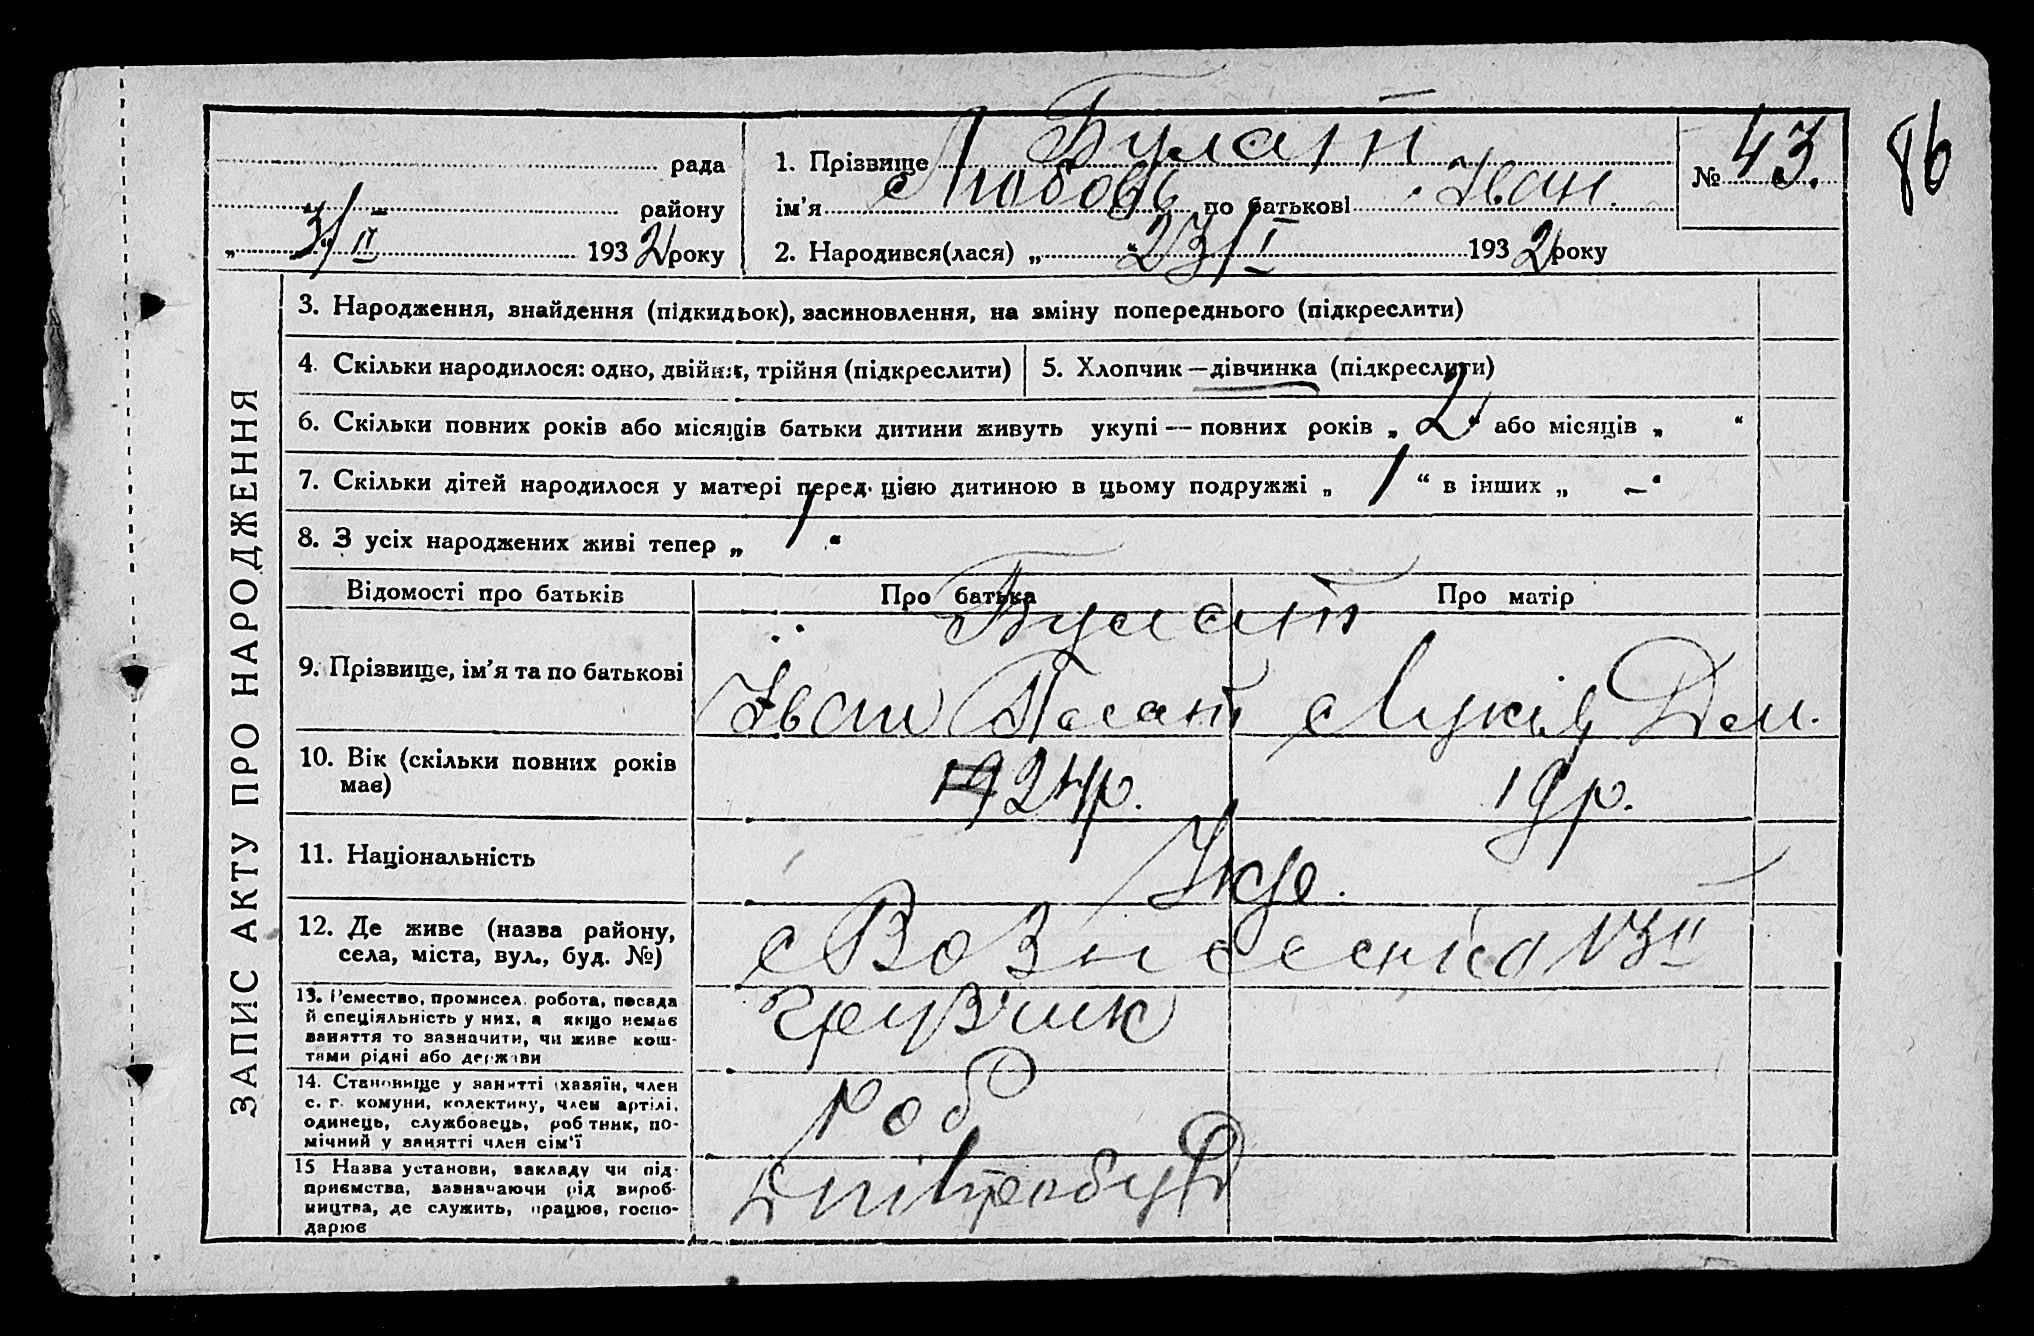 Булат
рада 1. Прізвище № 43. 86
району ім’я Любовь по батькові Іван.
„ 3/II 1932 року 2. Народився(лася) „ 23/I 1932 року
ЗАПИС АКТУ ПРО НАРОДЖЕННЯ
3. Народження, знайдення (підкидьок), засиновлення, на зміну попереднього (підкреслити)
4. Скільки народилося: одно, двійня, трійня (підкреслити) 5. Хлопчик — дівчинка (підкреслити)
6. Скільки повних років або місяців батьки дитини живуть укупі — повних років „ 2 “ або місяців „ “
7. Скільки дітей народилося у матері перед цією дитиною в цьому подружжі „ 1 “ в інших „ — “
8. З усіх народжених живі тепер „ 1 “
Відомості про батьків Про батька Про матір
Булат
9. Прізвище, ім’я та по батькові Іван Дем.
10. Вік (скільки повних років 24 р. 19 р.
має)
11. Національність Укр.
12. Де живе (назва району, с Вознесенка
села, міста, вул., буд. №)
13. Ремество, промисел, робота, посада грузчик
й спеціяльність у них, а якщо немає
заняття то зазначити, чи живе кош-
тами рідні або держави
14. Становище у занятті (хазяїн, член роб
с. г. комуни, колективу, член артілі,
одинець, службовець, робітник, по-
мічний у занятті член сім’ї
15 Назва установи, закладу чи під- Дніпробуд
приємства, зазначаючи рід вироб-
ництва, де служить, працює, госпо-
дарює